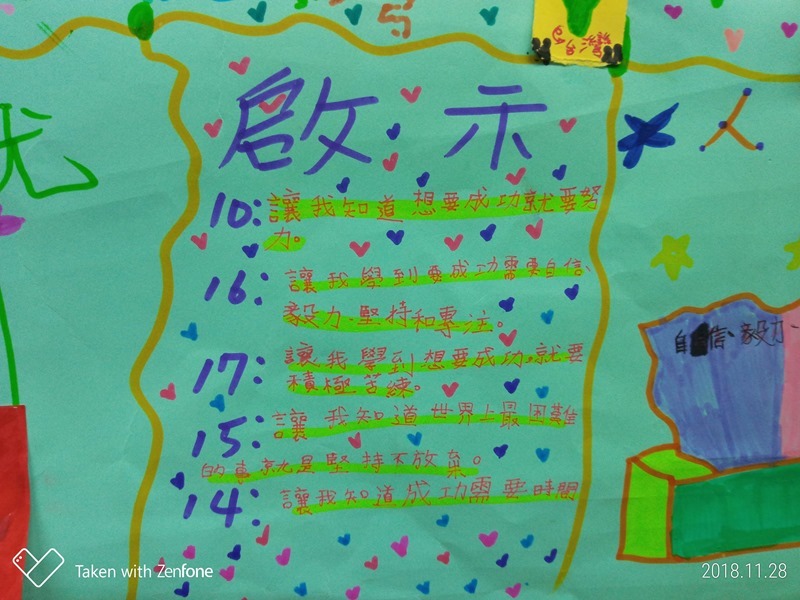 啟示
10:讓我知道想要成功就要努
力。
16:讓我學到要成功需要自信、
毅力、堅持和專注。
17:讓我學到想要成功,就要
積極苦練。
15:讓我知道世界上最困難
的事就是堅持不放棄。
14:讓我知道成功需要時間
尤
人
自信、毅力、
Taken with Zenfone
2018.11.28